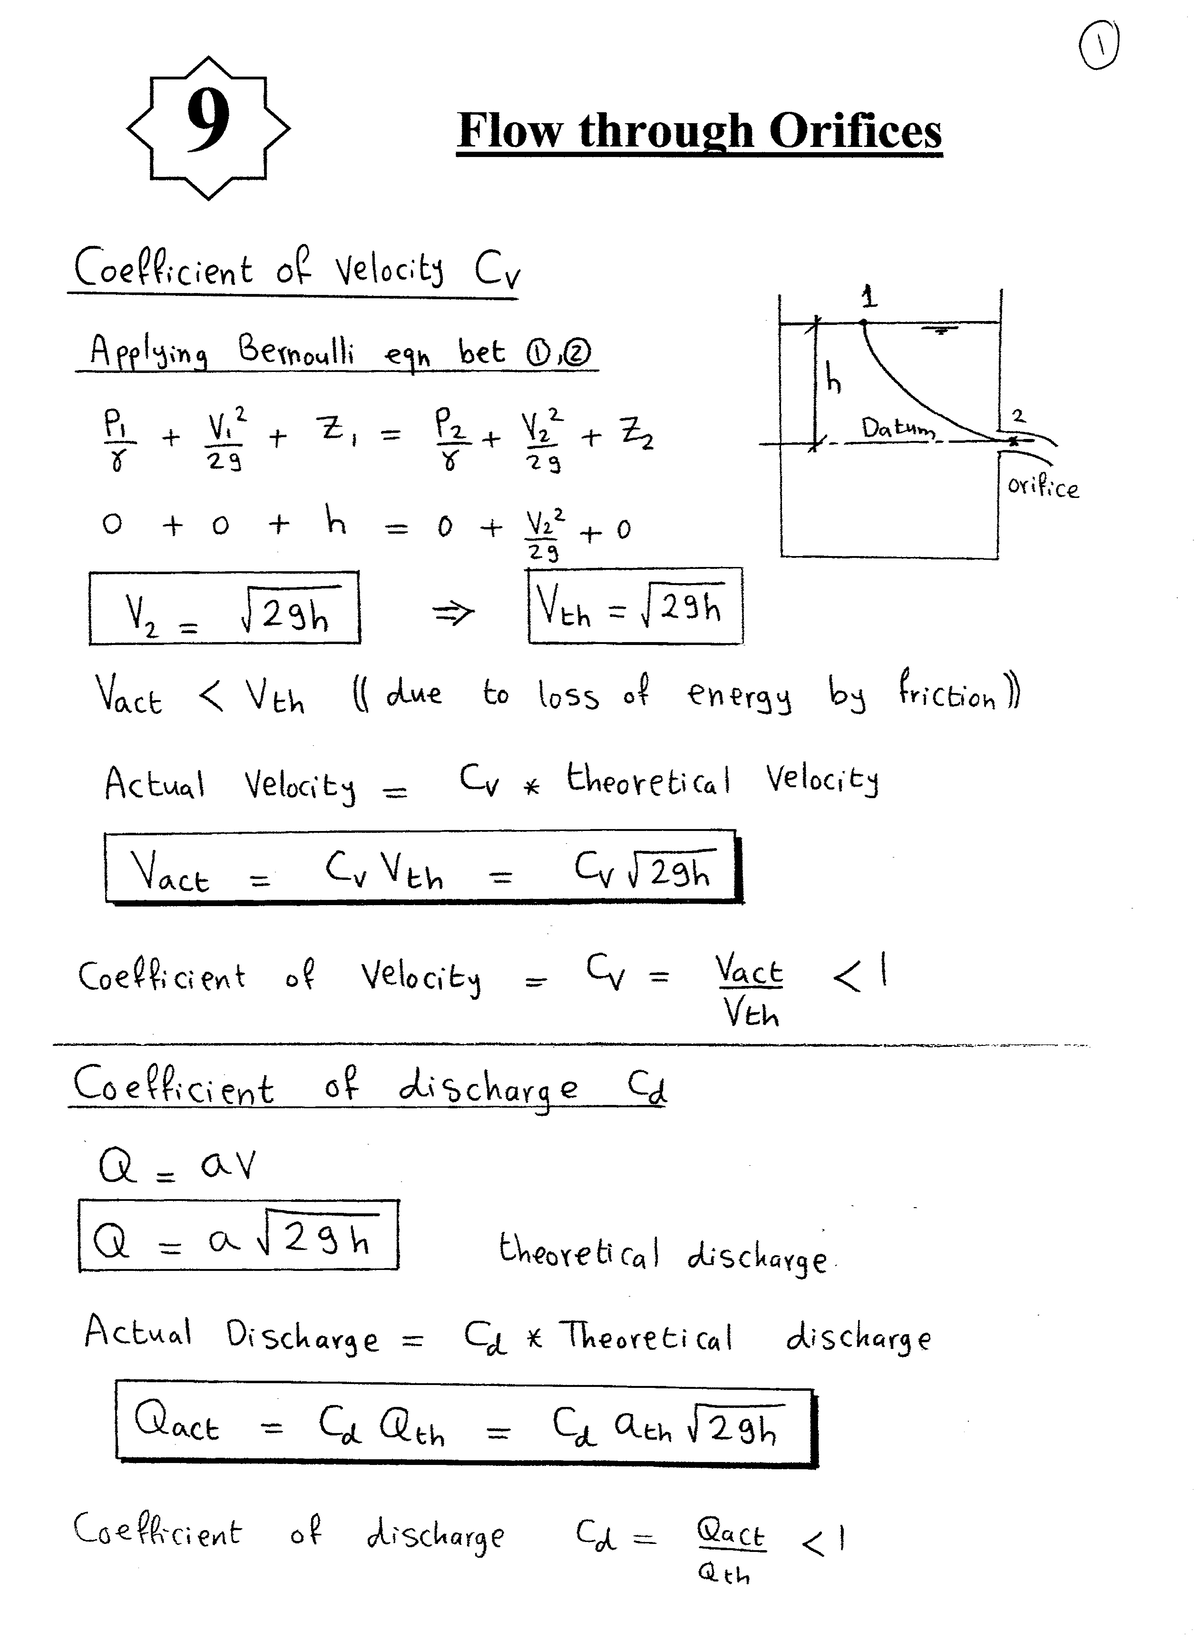 ①
9
Flow through Orifices
Coefficient of Velocity Cv
Applying Bernoulli eqn bet ①,②
P₁/γ + V₁²/2g + Z₁ = P₂/γ + V₂²/2g + Z₂
0 + 0 + h = 0 + V₂²/2g + 0
V₂ = √2gh ⇒ Vth = √2gh
1
h
Datum
2
orifice
Vact < Vth (( due to loss of energy by friction ))
Actual Velocity = Cv * theoretical Velocity
Vact = Cv Vth = Cv √2gh
Coefficient of Velocity = Cv = Vact/Vth < 1
Coefficient of discharge Cd
Q = av
Q = a √2gh theoretical discharge.
Actual Discharge = Cd * Theoretical discharge
Qact = Cd Qth = Cd ath √2gh
Coefficient of discharge Cd = Qact/Qth < 1